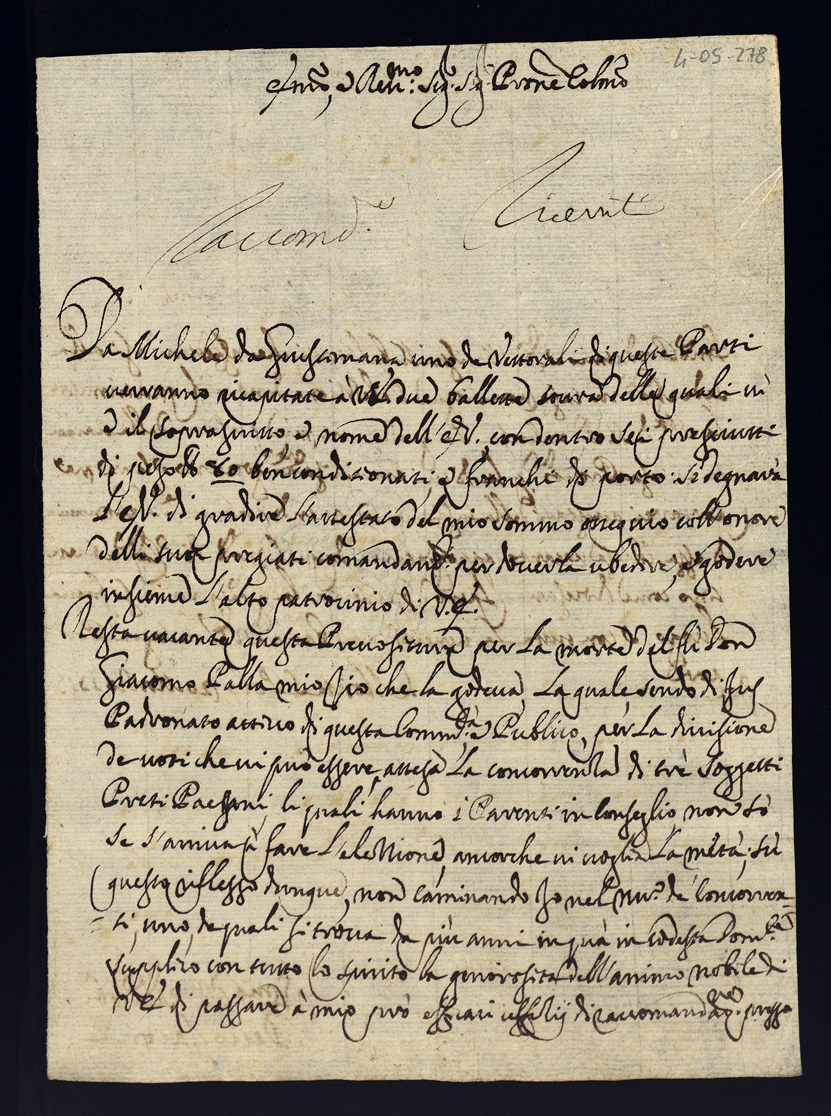 4-05-278
Ecc.mo, e Rev.mo Sig.r Sig.r P'rone Col.mo
Raccomd.e
Ricevute
Da Michele da Giustimana uno de Vetturali di queste Parti
verranno ricapitate à V.E. due ballette soura delle quali vi
è il soprascritto à nome dell'E.V. con dentro sei presciutti
di pezo lb 80 ben conditionati, e franchi di porto: si degnarà
l'E.V. di gradire l'attestato del mio sommo ossequio coll'onore
delli suoi pregiati comandam.ti per doverla ubedire, e godere
insieme l'alto patrocinio di V.E.
Resta vacante questa Prevositura per la morte del fù Don
Giacomo Palla mio Zio che la godeva, la quale sendo di Jus
Padronato attivo di questa Comm.tà e Publico, per la divisione
de voti che vi può essere, attesa la concorrenza di trè soggetti
Preti Paesani, li quali hanno i Parenti in Conseglio non sò
se s'arrivarà à fare l'elettione, ancorche vi voglia la metà; sù
questo riflesso dunque, non caminando Io nel nu.o de Concorren=
=ti, uno, de quali si trova da più anni in quà in codesta Dom.te
supplico con tutto lo spirito la generosità dell'animo nobile di
V.E. di passare à mio prò efficaci uffitij di raccomandaz.ne presso